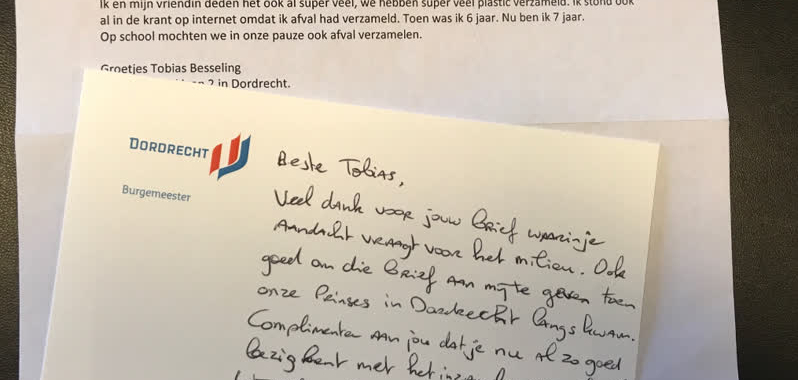 Ik en mijn vriendin deden het ook al super veel, we hebben super veel plastic verzameld. Ik stond ook
al in de krant op internet omdat ik afval had verzameld. Toen was ik 6 jaar. Nu ben ik 7 jaar.
Op school mochten we in onze pauze ook afval verzamelen.
Groetjes Tobias Besseling
2 in Dordrecht.
DORDRECHT
Burgemeester
Beste Tobias,
Veel dank voor jouw brief waarin je
aandacht vraagt voor het milieu. Ook
goed om die brief aan mij te geven toen
onze Prinses in Dordrecht langs kwam.
Complimenten aan jou dat je nu al zo goed
bezig bent met het